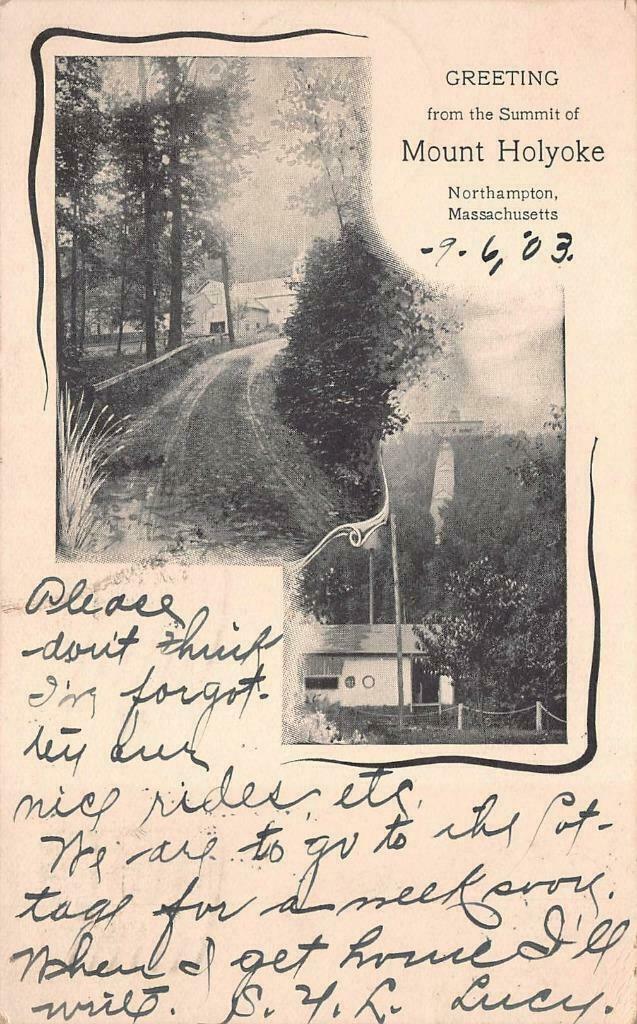 GREETING
from the Summit of
Mount Holyoke
Northampton,
Massachusetts
-9-6, '03.
Please
don't think
I'm forgot-
ten our
nice rides, etc.
We are to go to the Cot-
tage for a week soon.
When I get home I'll
write. S. Y. L. Lucy.